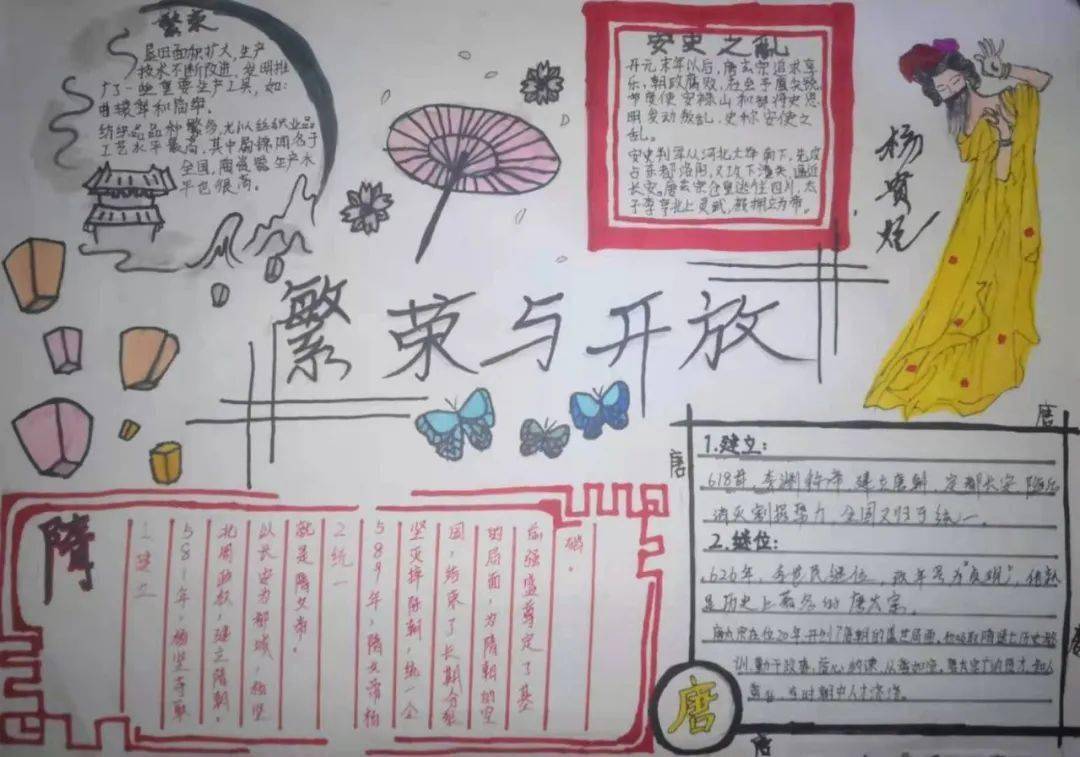 繁荣
垦田面积扩大,生产
技术不断改进,发明推
广了一些重要生产工具,如:
曲辕犁和筒车。
纺织品品种繁多,尤以丝织业品
工艺水平最高,其中蜀锦闻名于
全国,陶瓷器生产水
平也很高。
安史之亂
开元末年以后,唐玄宗追求享
乐,朝政腐败,
节度使安禄山和部将史思
明发动叛乱,史称安史之
乱。
安史叛军从河北大举南下,先攻
占东都洛阳,又攻下潼关,逼近
长安。唐玄宗仓皇逃往四川,太
子李亨北上灵武,被拥立为帝。
杨贵妃
繁荣与开放
隋
1建立
581年,杨坚夺取
北周政权,建立隋朝。
以长安为都城,杨坚
就是隋文帝。
2统一
589年,隋文帝杨
坚灭掉陈朝,统一全
国,结束了长期分裂
的局面,为隋朝的空
后强盛尊定了基
础。
唐
唐
唐
唐
唐
1.建立:
618年,李渊称帝,建立唐朝,定都长安,随后
消灭割据势力,全国又归于统一。
2.继位:
626年,李世民继位,改年号为“贞观”,他就
是历史上著名的唐太宗。
唐太宗在位20年,开创了唐朝的盛世局面,他吸取隋亡历史教
训,勤于政事,虚心纳谏,从善如流。
当时朝中人才济济。